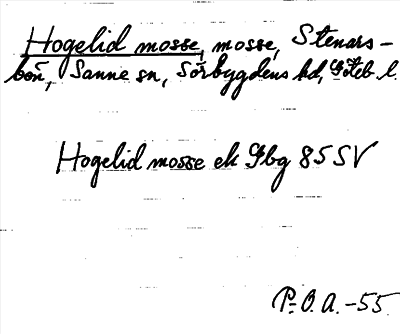 Hogelid mosse, mosse, Stenars-
bön, Sanne sn, Sörbygdens hd, Göteb. l.
Hogelid mosse ek Gbg 85 SV
P.O.A. -55.